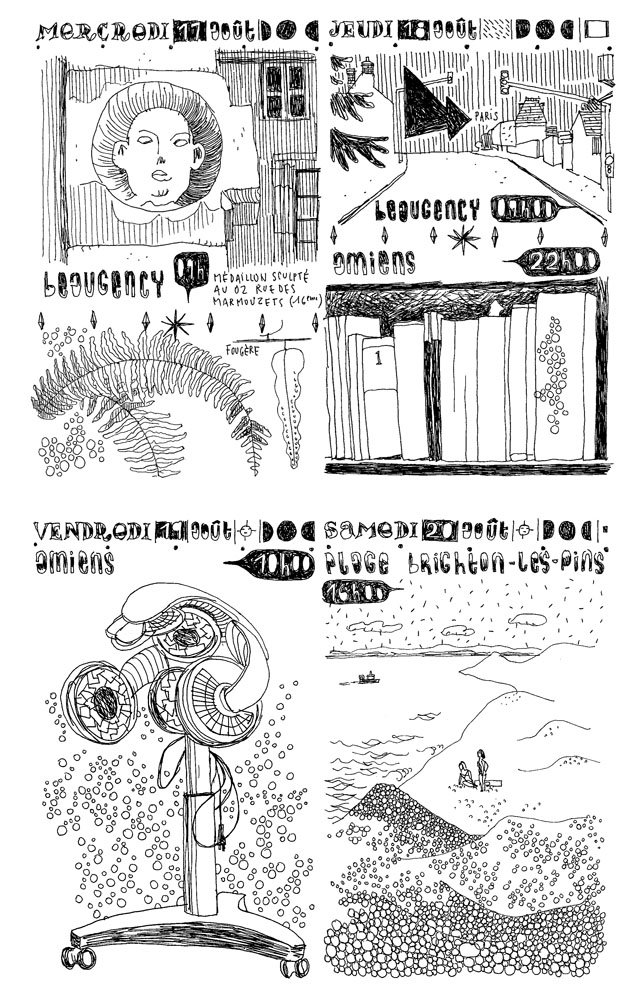 MERCREDI 17 août DOC
BEAUGENCY
MÉDAILLON SCULPTÉ
AU 02 RUE DES
MARMOUZETS (16ème)
FOUGÈRE
JEUDI 18 août DOC
PARIS
BEAUGENCY
amiens 22h00
1
VENDREDI 19 août DOC
amiens 10h00
SAMEDI 20 août DOC
PLAGE BRIGHTON-LES-PINS
16h00